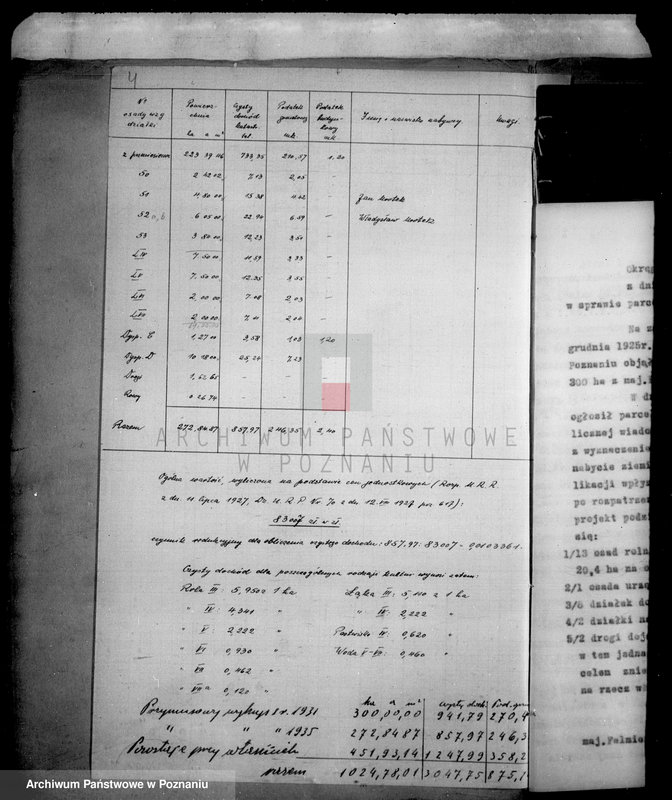 4
Nr osady wzg działki | Powierzchnia ha a m² | Czysty dochód katastr. tal. | Podatek gruntowy mk. | Podatek budynkowy mk. | Imię i nazwisko nabywcy | Uwagi
z przeniesienia 223 39 06 733,35 210,57 1.20
50 2 42 02 7,13 2,05 –
51 4 80 00 15.38 4.42 – Jan
52 a, b 6 05 00 22.90 6.59 – Władysław
53 3 80 00 12,23 3.51 –
LIV 7.50 00 11,59 3.33 –
LV 7.50 00 12.35 3.55 –
LVI 2 00 00 7.08 2,03 –
LVII 2 00 00 7,11 2.04 –
Dgsp. C 1,27 00 3,58 1.03 1.20
Dgsp. D 10 18 00 25,24 7.23
Drogi 1,62 65 – – –
Rowy 0 26 74 – – –
Razem 272,84 87 857,97 246,35 2,40
ARCHIWUM PAŃSTWOWE
W POZNANIU
Ogólna wartość, wyliczona na podstawie cen jednostkowych (Rozp. M. R. R.
z dn. 11 lipca 1927, Dz. U. R. P. Nr. 70 z dn. 12.VIII 1927 poz 617):
83007 zł. w zł.
czynnik redukcyjny dla obliczenia czystego dochodu: 857.97: 83007 = 0,0103361.
Czysty dochód dla poszczególnych rodzaju kultur wynosi zatem:
Rola III : 5,950 z 1 ha Łąka III : 5,110 z 1 ha
" IV : 4,341 " " IV : 2,222 "
" V : 2,222 " Pastwisko IV : 0,620 "
" VI 0,930 " Woda V–VI : 0,460 "
" VII 0,462 "
" VIIa 0,120 "
ha a m² czysty doch. Pod. grun
Przymusowy wykup z r. 1931 300,00,00 941,79 270,4
" " " 1935 272,84 87 857,97 246,3
Pozostaje przy właścicielu 451,93,14 1247,99 358,2
razem 1024,78,01 3047,75 875,1
Okręg
z dni
w sprawie parce
Na za
grudnia 1925r.
Poznaniu objął
300 ha z maj.
W dn
ogłosił parcel
licznej wiado
z wyznaczenie
nabycie ziemi
likacji wpły
po rozpatrzen
projekt podzi
się:
1/13 osad roln
20,4 ha na o
2/1 osada urzą
3/8 działek do
4/2 działki na
5/2 drogi doja
w tem jedna
celem znie
na rzecz wł
maj.Palmie
Archiwum Państwowe w Poznaniu